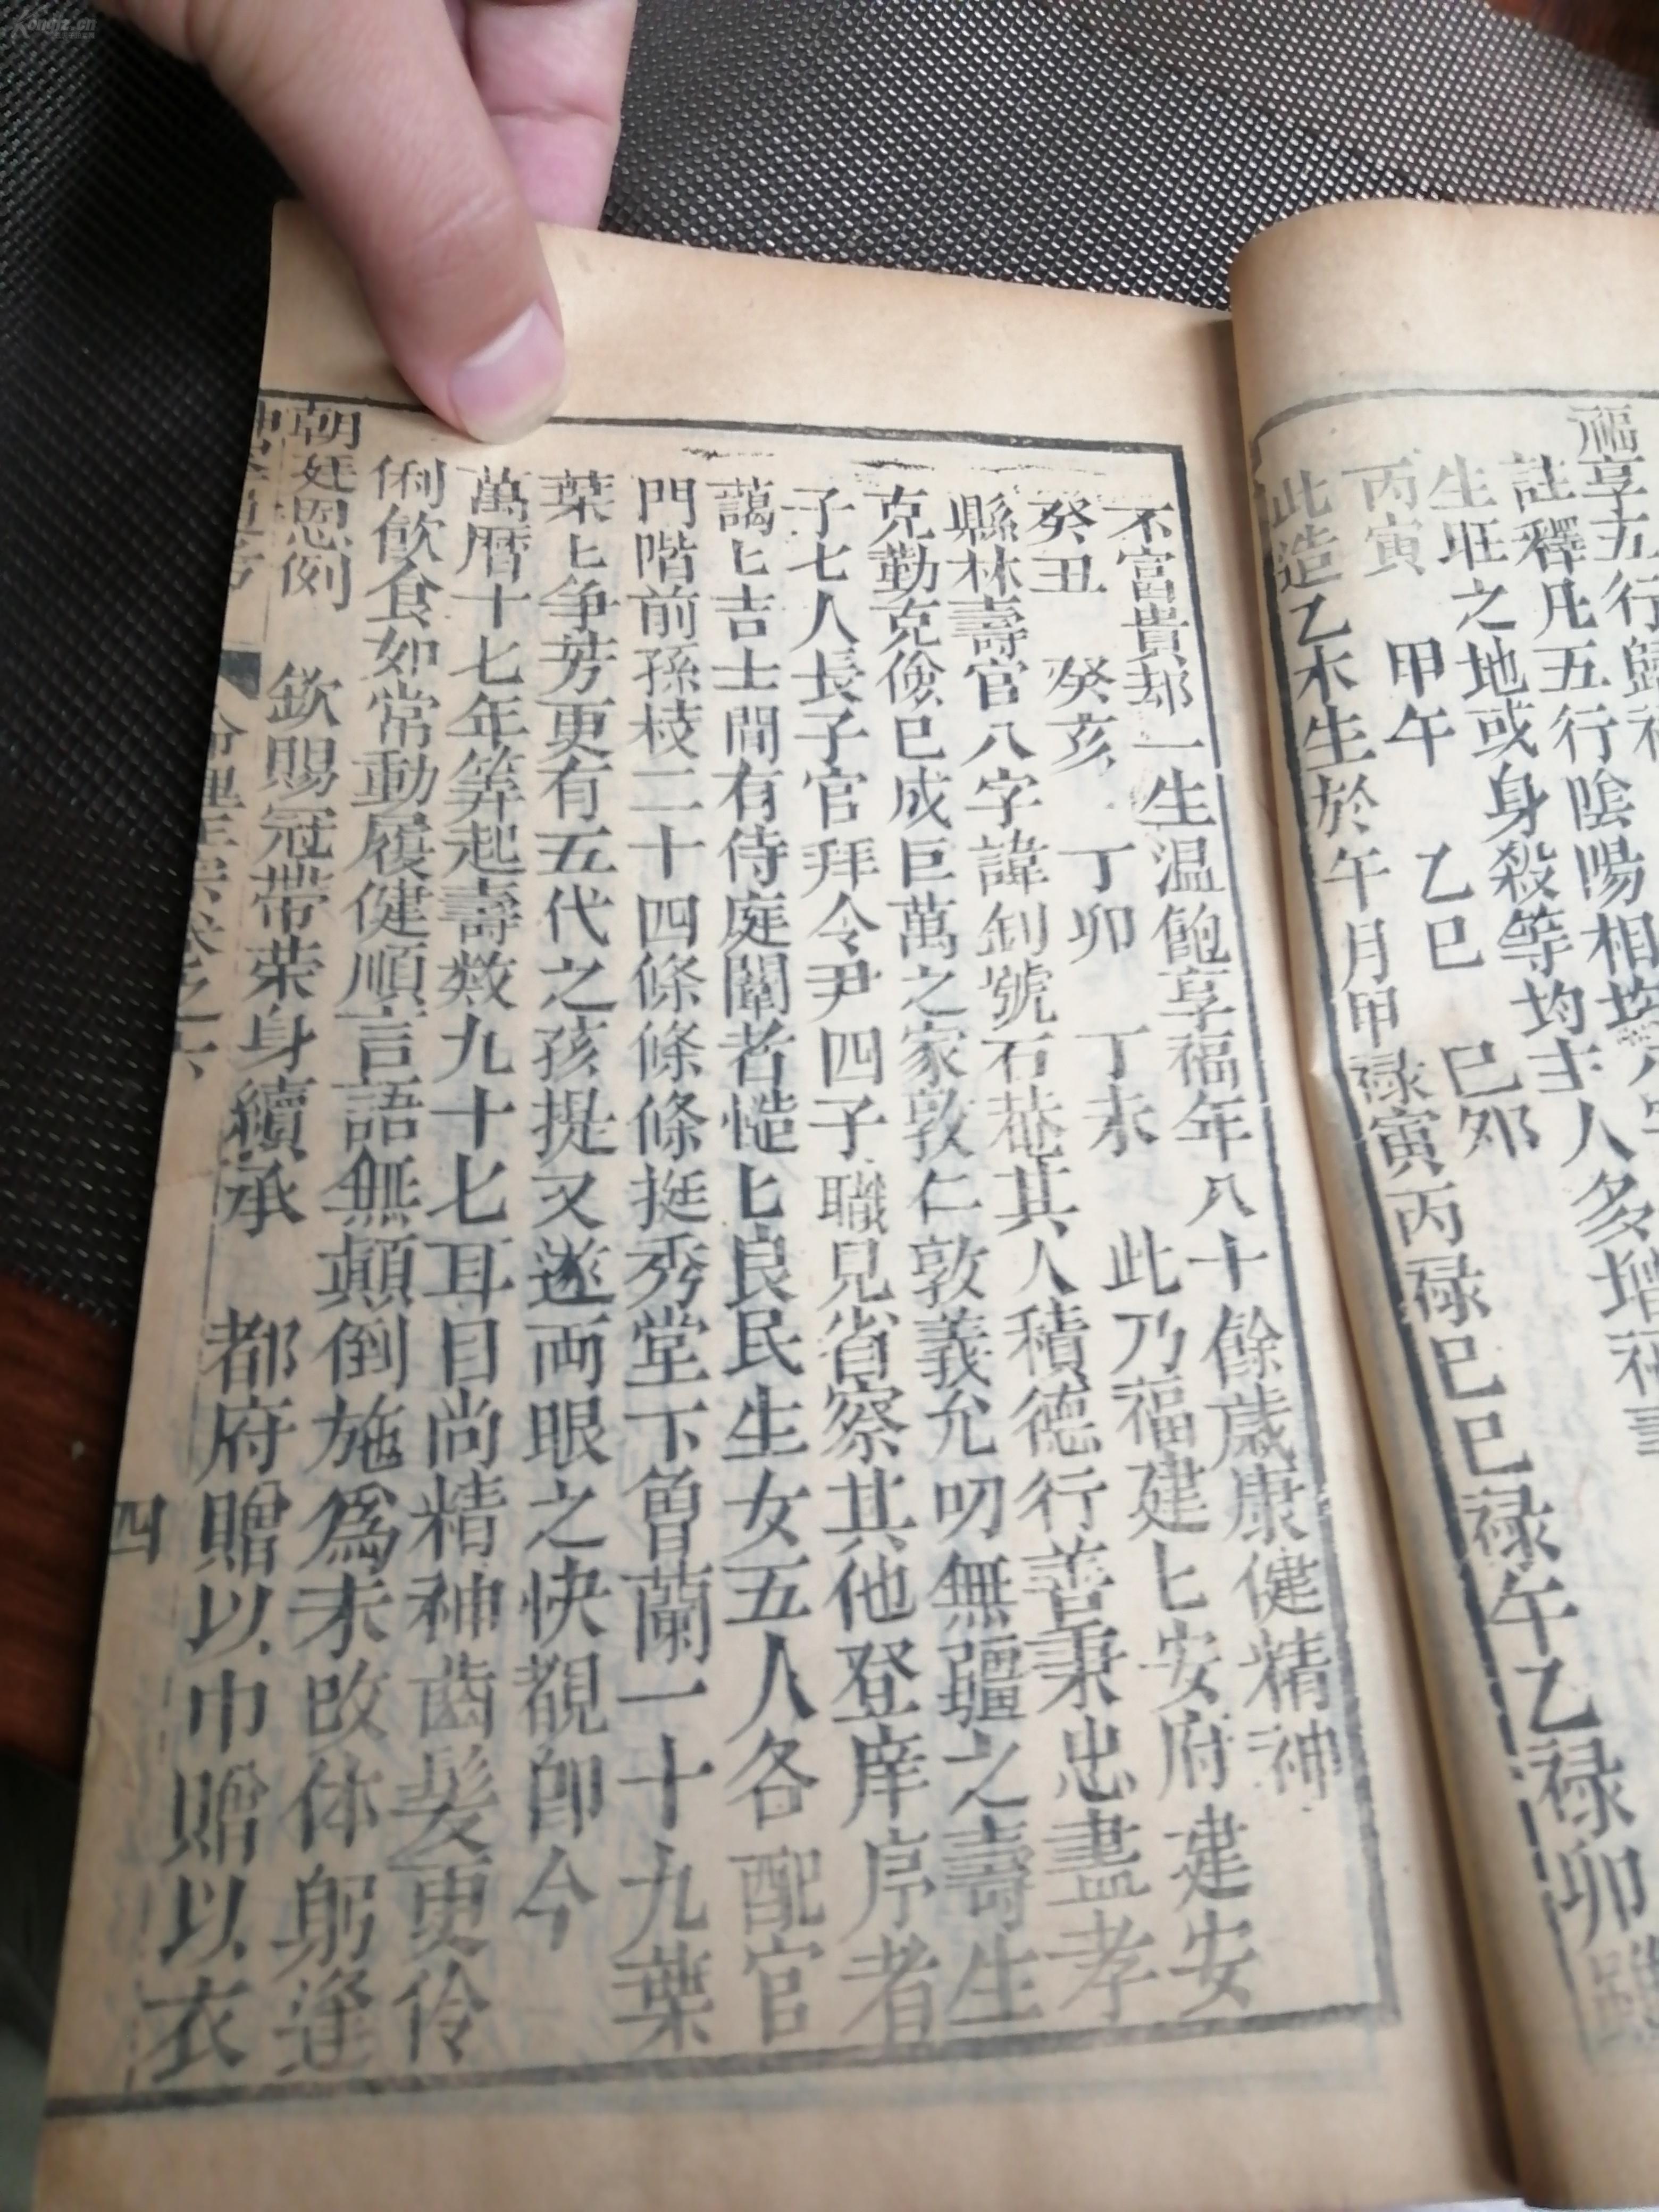 福享五行歸
註釋凡五行陰陽相均
生旺之地或身殺等均主人多增
丙寅 甲午 乙巳 己卯
此造乙木生於午月甲祿寅丙祿巳巳祿午乙祿卯
不富貴却一生温飽享福年八十餘歲康健精神
癸丑 癸亥 丁卯 丁未 此乃福建匕安府建安
縣林壽官八字諱釗號石菴其人積德行善秉忠盡孝
克勤克儉巳成巨萬之家敦仁敦義允叨無疆之壽生
子七人長子官拜令尹四子職見省察其他登庠序者
藹匕吉士間有侍庭闈者慥匕良民生女五人各配官
門階前孫枝二十四條條條挺秀堂下曾蘭一十九葉
葉匕争芳更有五代之孩提又遂両眼之快覩即今
萬曆十七年筭起壽数九十七耳目尚精神齒髪更伶
俐飲食如常動履健順言語無顛倒施為未改体躬逢
朝廷恩例 欽賜冠帶荣身續承 都府贈以巾贈以衣
四